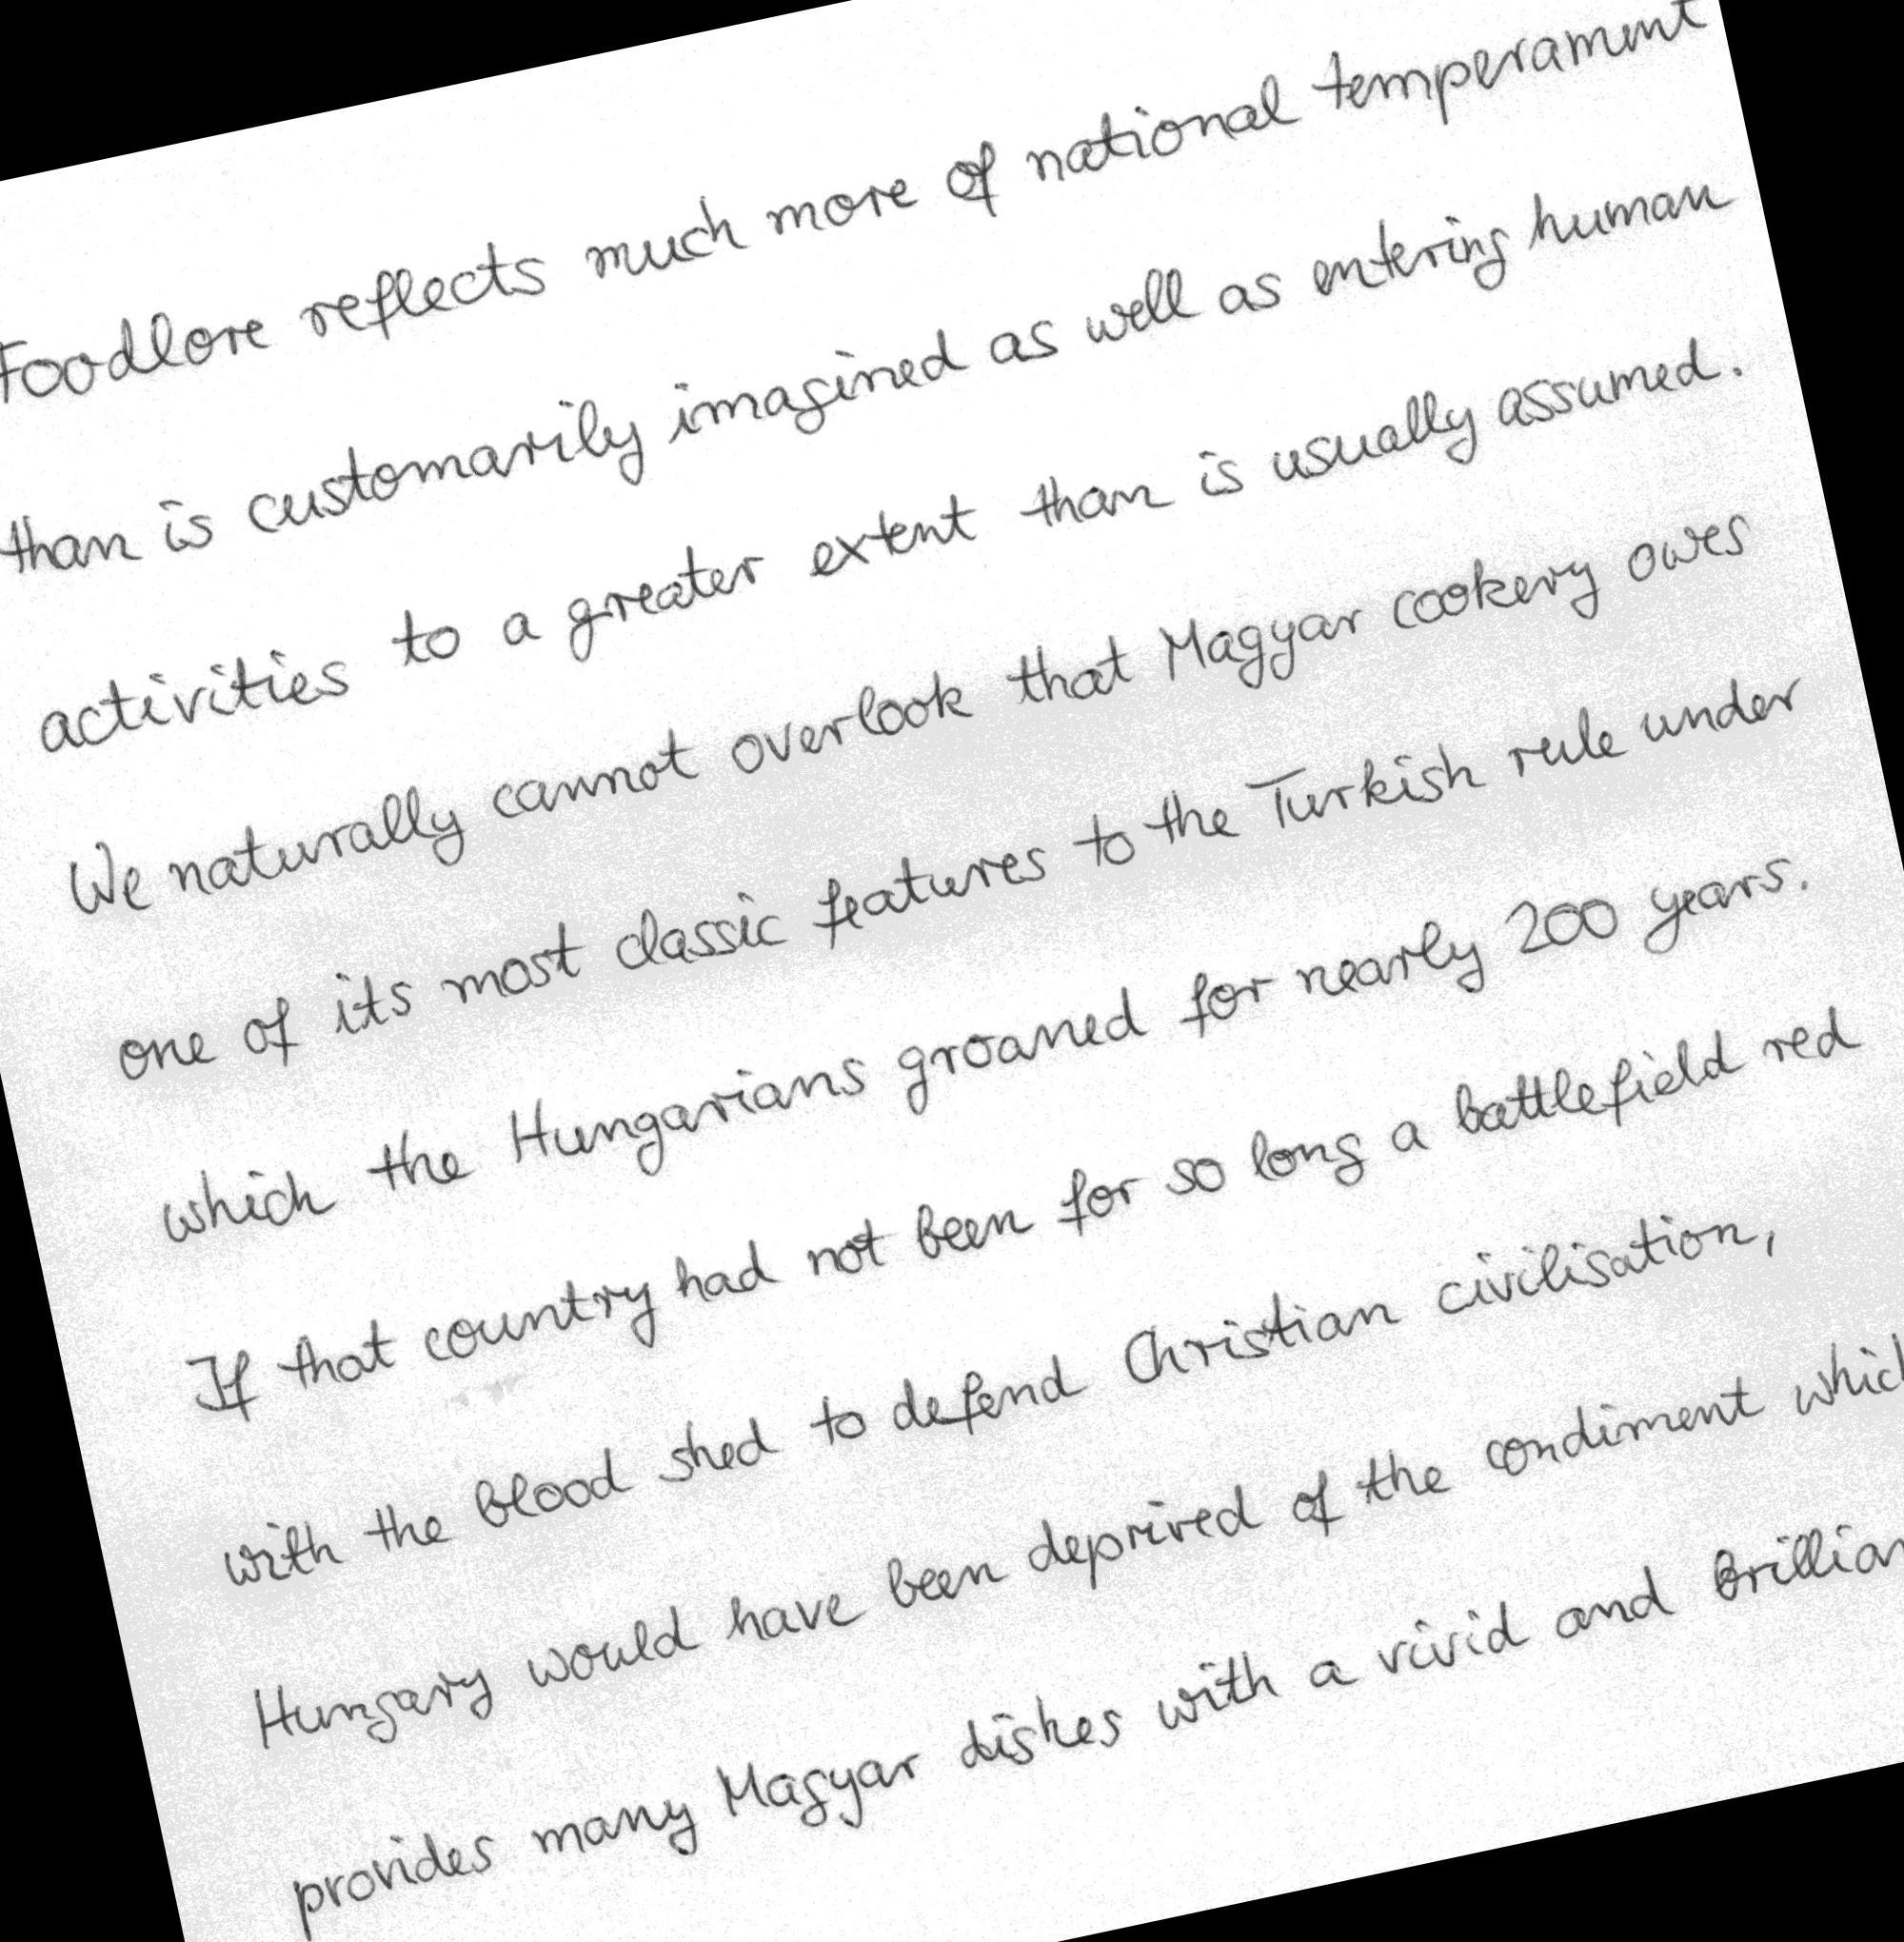 Foodlore reflects much more of national temperament
than is customarily imagined as well as entering human
activities to a greater extent than is usually assumed.
We naturally cannot overlook that Magyar cookery owes
one of its most classic features to the Turkish rule under
which the Hungarians groaned for nearly 200 years.
If that country had not been for so long a battlefield red
with the blood shed to defend Christian civilisation,
Hungary would have been deprived of the condiment which
provides many Magyar dishes with a vivid and